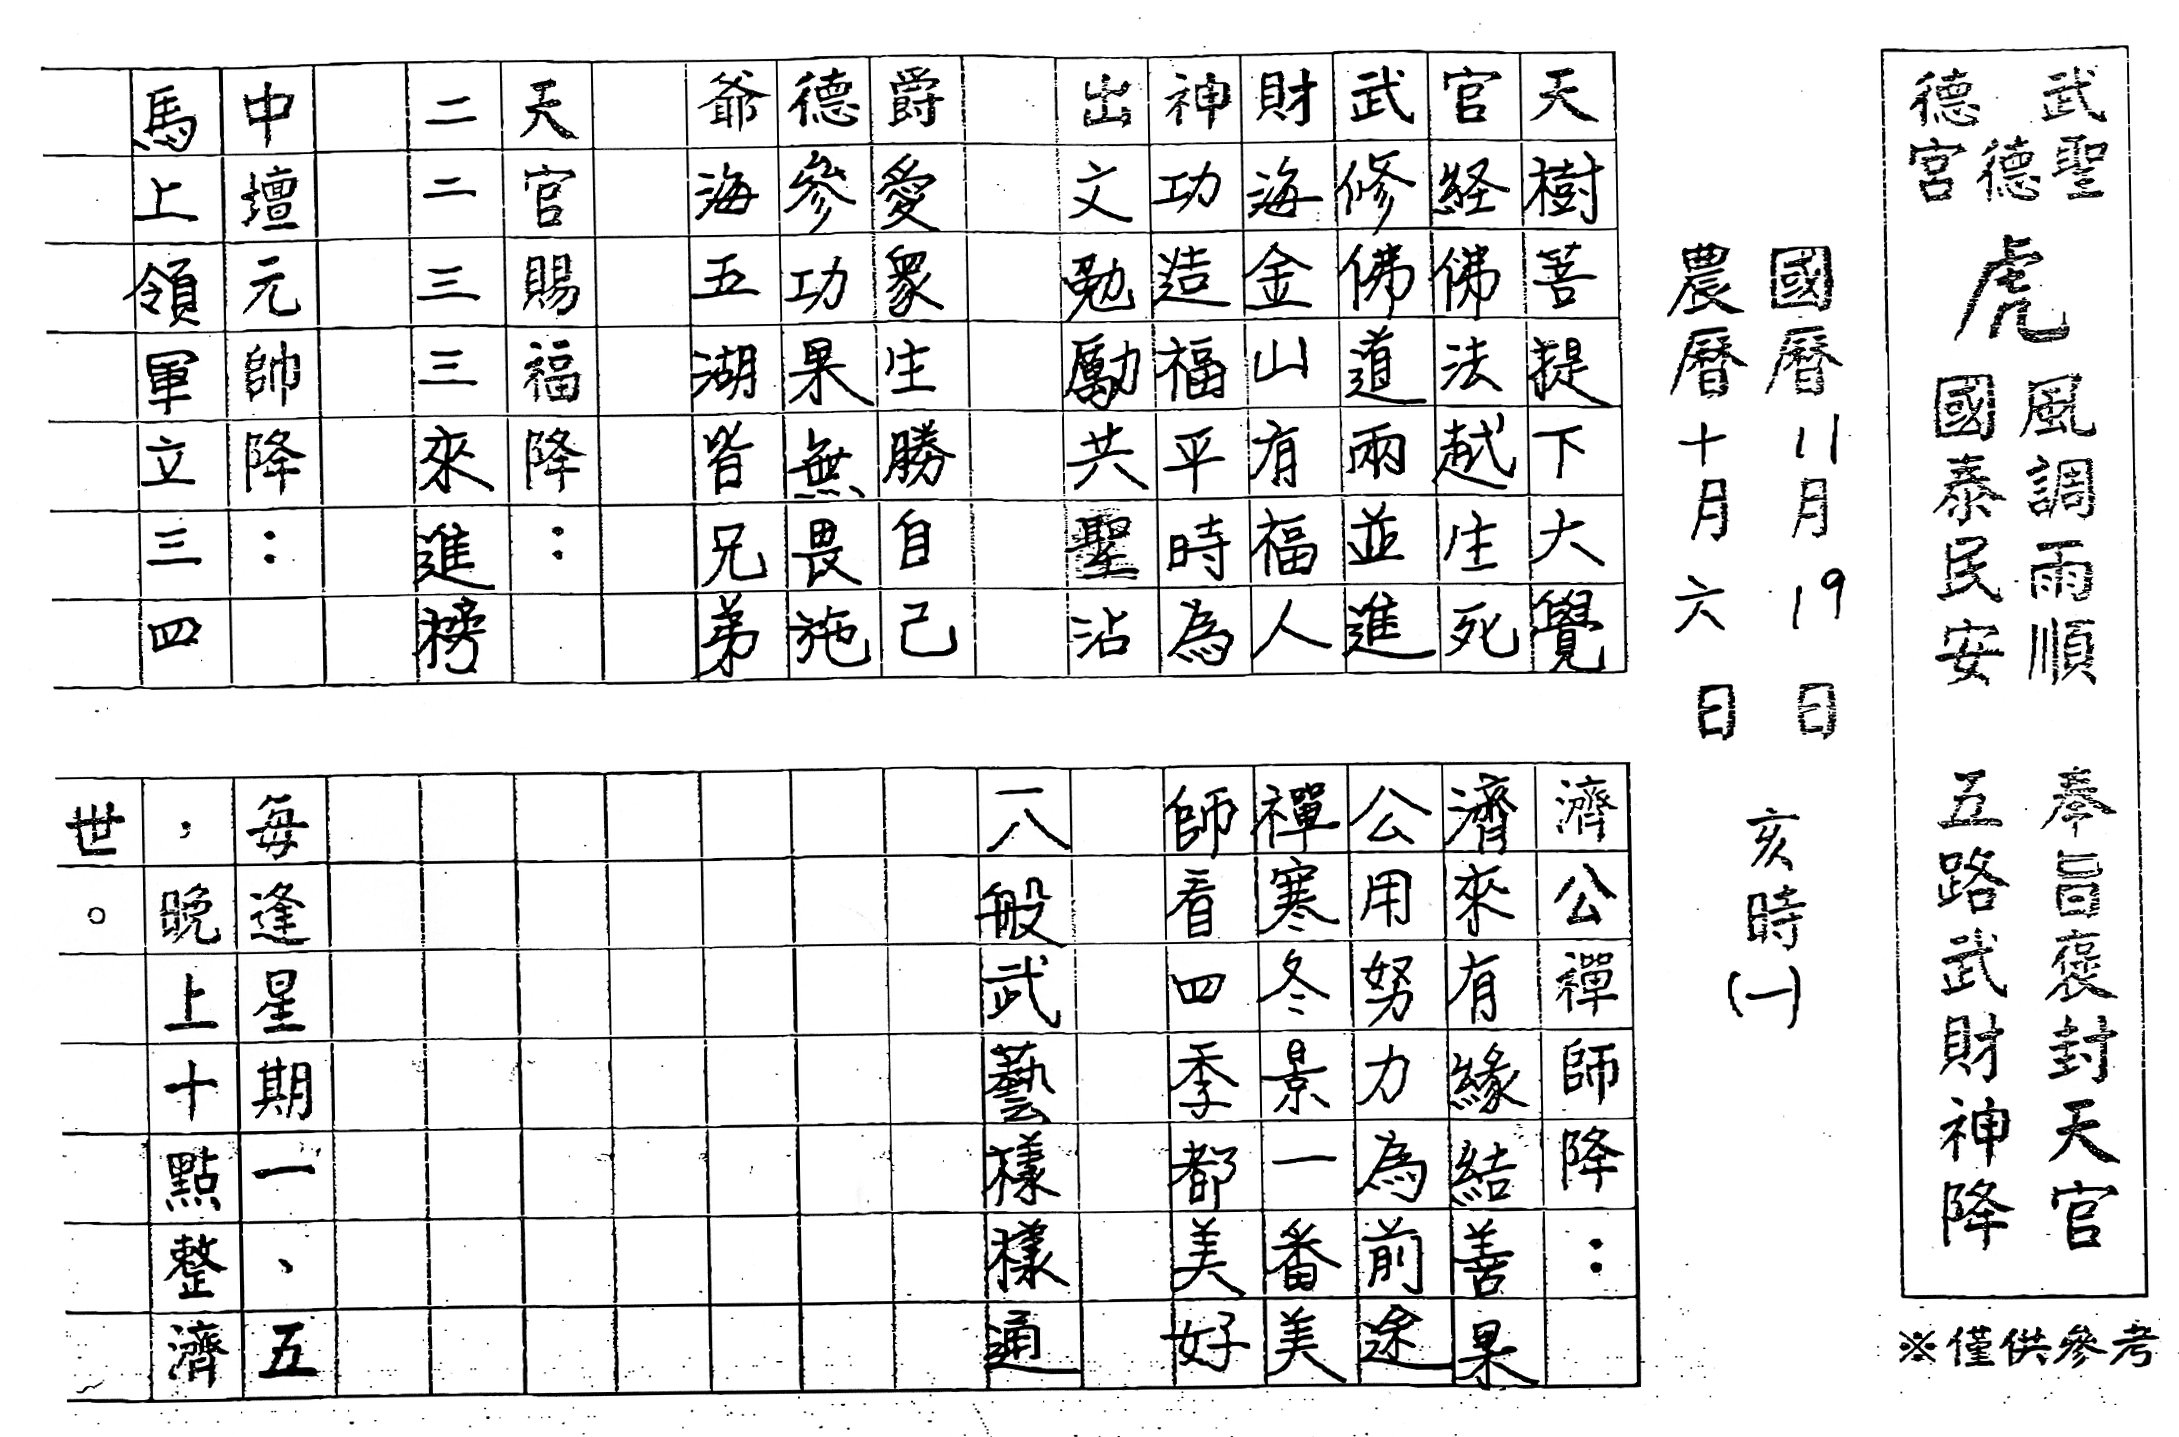 武聖 德德宮
虎
風調雨順
國泰民安
奉旨褒封天官
五路武財神降
※僅供參考
國曆11月19日
農曆十月六日
亥時(一)
天樹菩提下大覺
官経佛法越生死
武修佛道兩並進
財海金山有福人
神功造福平時為
出文勉勵共聖沾
爵愛眾生勝自己
德參功果無畏施
爺海五湖皆兄弟
天官賜福降：
二二三三來進榜
中壇元帥降：
馬上領軍立三四
濟公禪師降：
濟來有緣結善果
公用努力為前途
禪寒冬景一番美
師看四季都美好
一八般武藝樣樣通
每逢星期一、五
，晚上十點整濟
世。